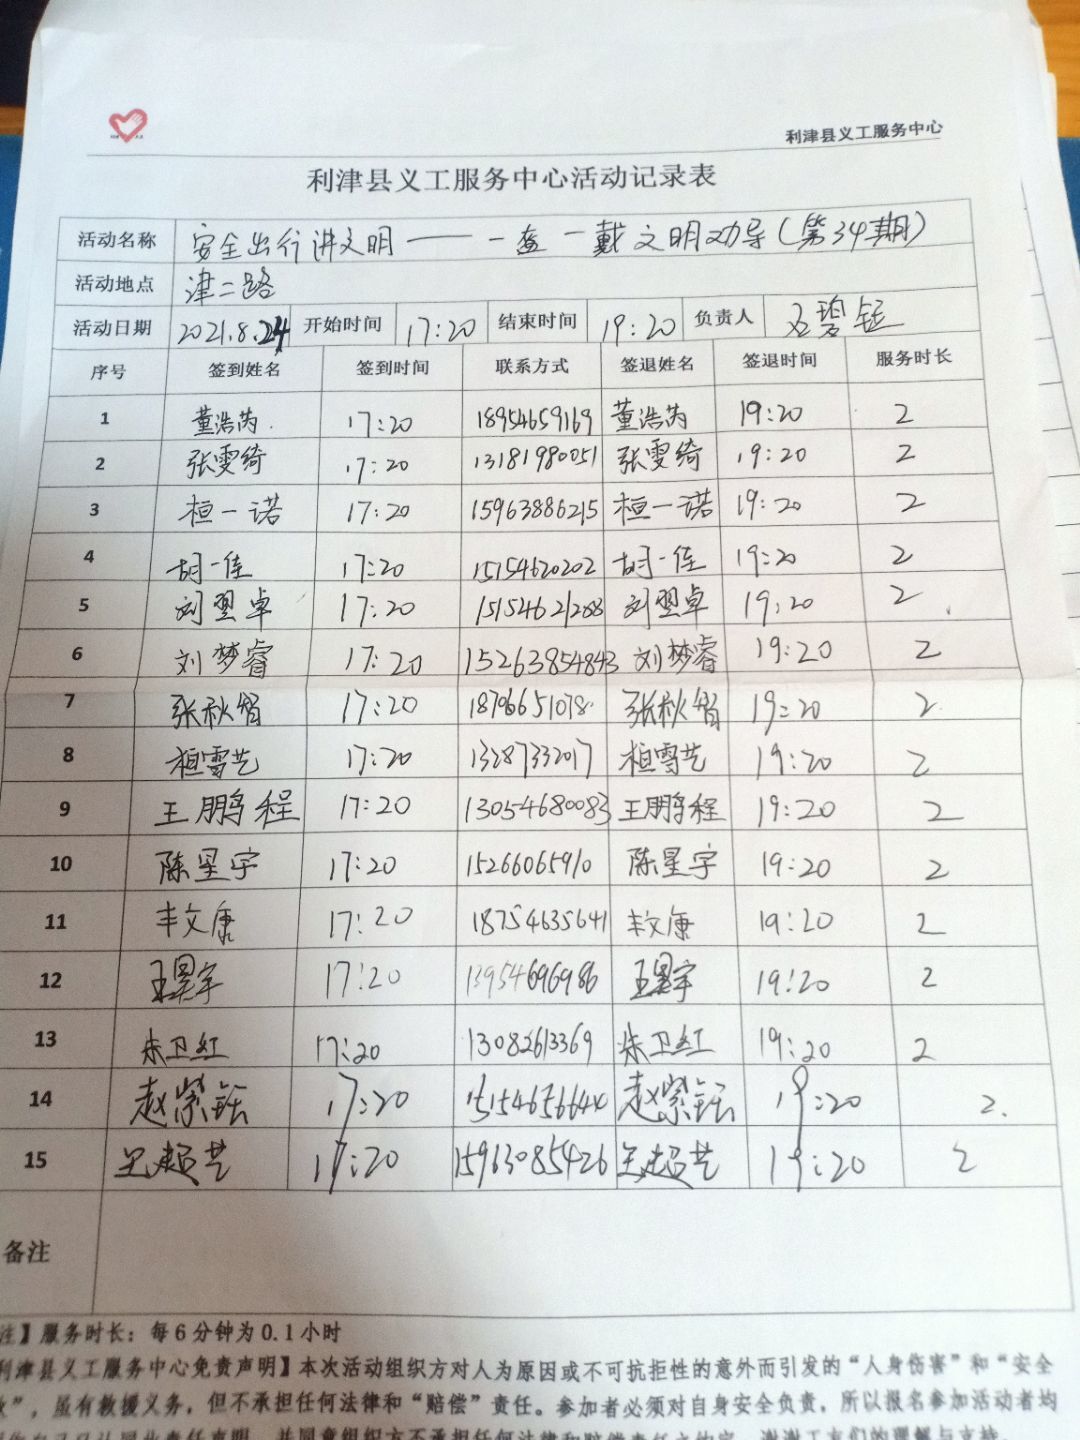 利津县义工服务中心
利津县义工服务中心活动记录表
活动名称 安全出行讲文明——一盔一戴文明劝导(第34期)
活动地点 津二路
活动日期 2021.8.24 开始时间 17:20 结束时间 19:20 负责人
序号 签到姓名 签到时间 联系方式 签退姓名 签退时间 服务时长
1 董浩芮 17:20 18954659169 董浩芮 19:20 2
2 张雯绮 17:20 13181980051 张雯绮 19:20 2
3 桓一诺 17:20 15963886215 桓一诺 19:20 2
4 胡一佳 17:20 15154620202 胡一佳 19:20 2
5 刘翌卓 17:20 15154621288 刘翌卓 19:20 2
6 刘梦睿 17:20 15263854843 刘梦睿 19:20 2
7 张秋智 17:20 18796651078 张秋智 19:20 2
8 桓雪艺 17:20 13287332017 桓雪艺 19:20 2
9 王鹏程 17:20 13054680083 王鹏程 19:20 2
10 陈星宇 17:20 15266065910 陈星宇 19:20 2
11 丰文康 17:20 18754635641 丰文康 19:20 2
12 王昊宇 17:20 13954696986 王昊宇 19:20 2
13 朱卫红 17:20 13082613369 朱卫红 19:20 2
14 赵紫钰 17:20 赵紫钰 19:20 2.
15 17:20 15963085426 19:20 2
备注
注】服务时长：每6分钟为0.1小时
利津县义工服务中心免责声明】本次活动组织方对人为原因或不可抗拒性的意外而引发的“人身伤害”和“安全
”，虽有救援义务，但不承担任何法律和“赔偿”责任。参加者必须对自身安全负责，所以报名参加活动者均
并同意组织方不承担任何法律和赔偿责任之约定，谢谢工友们的理解与支持。